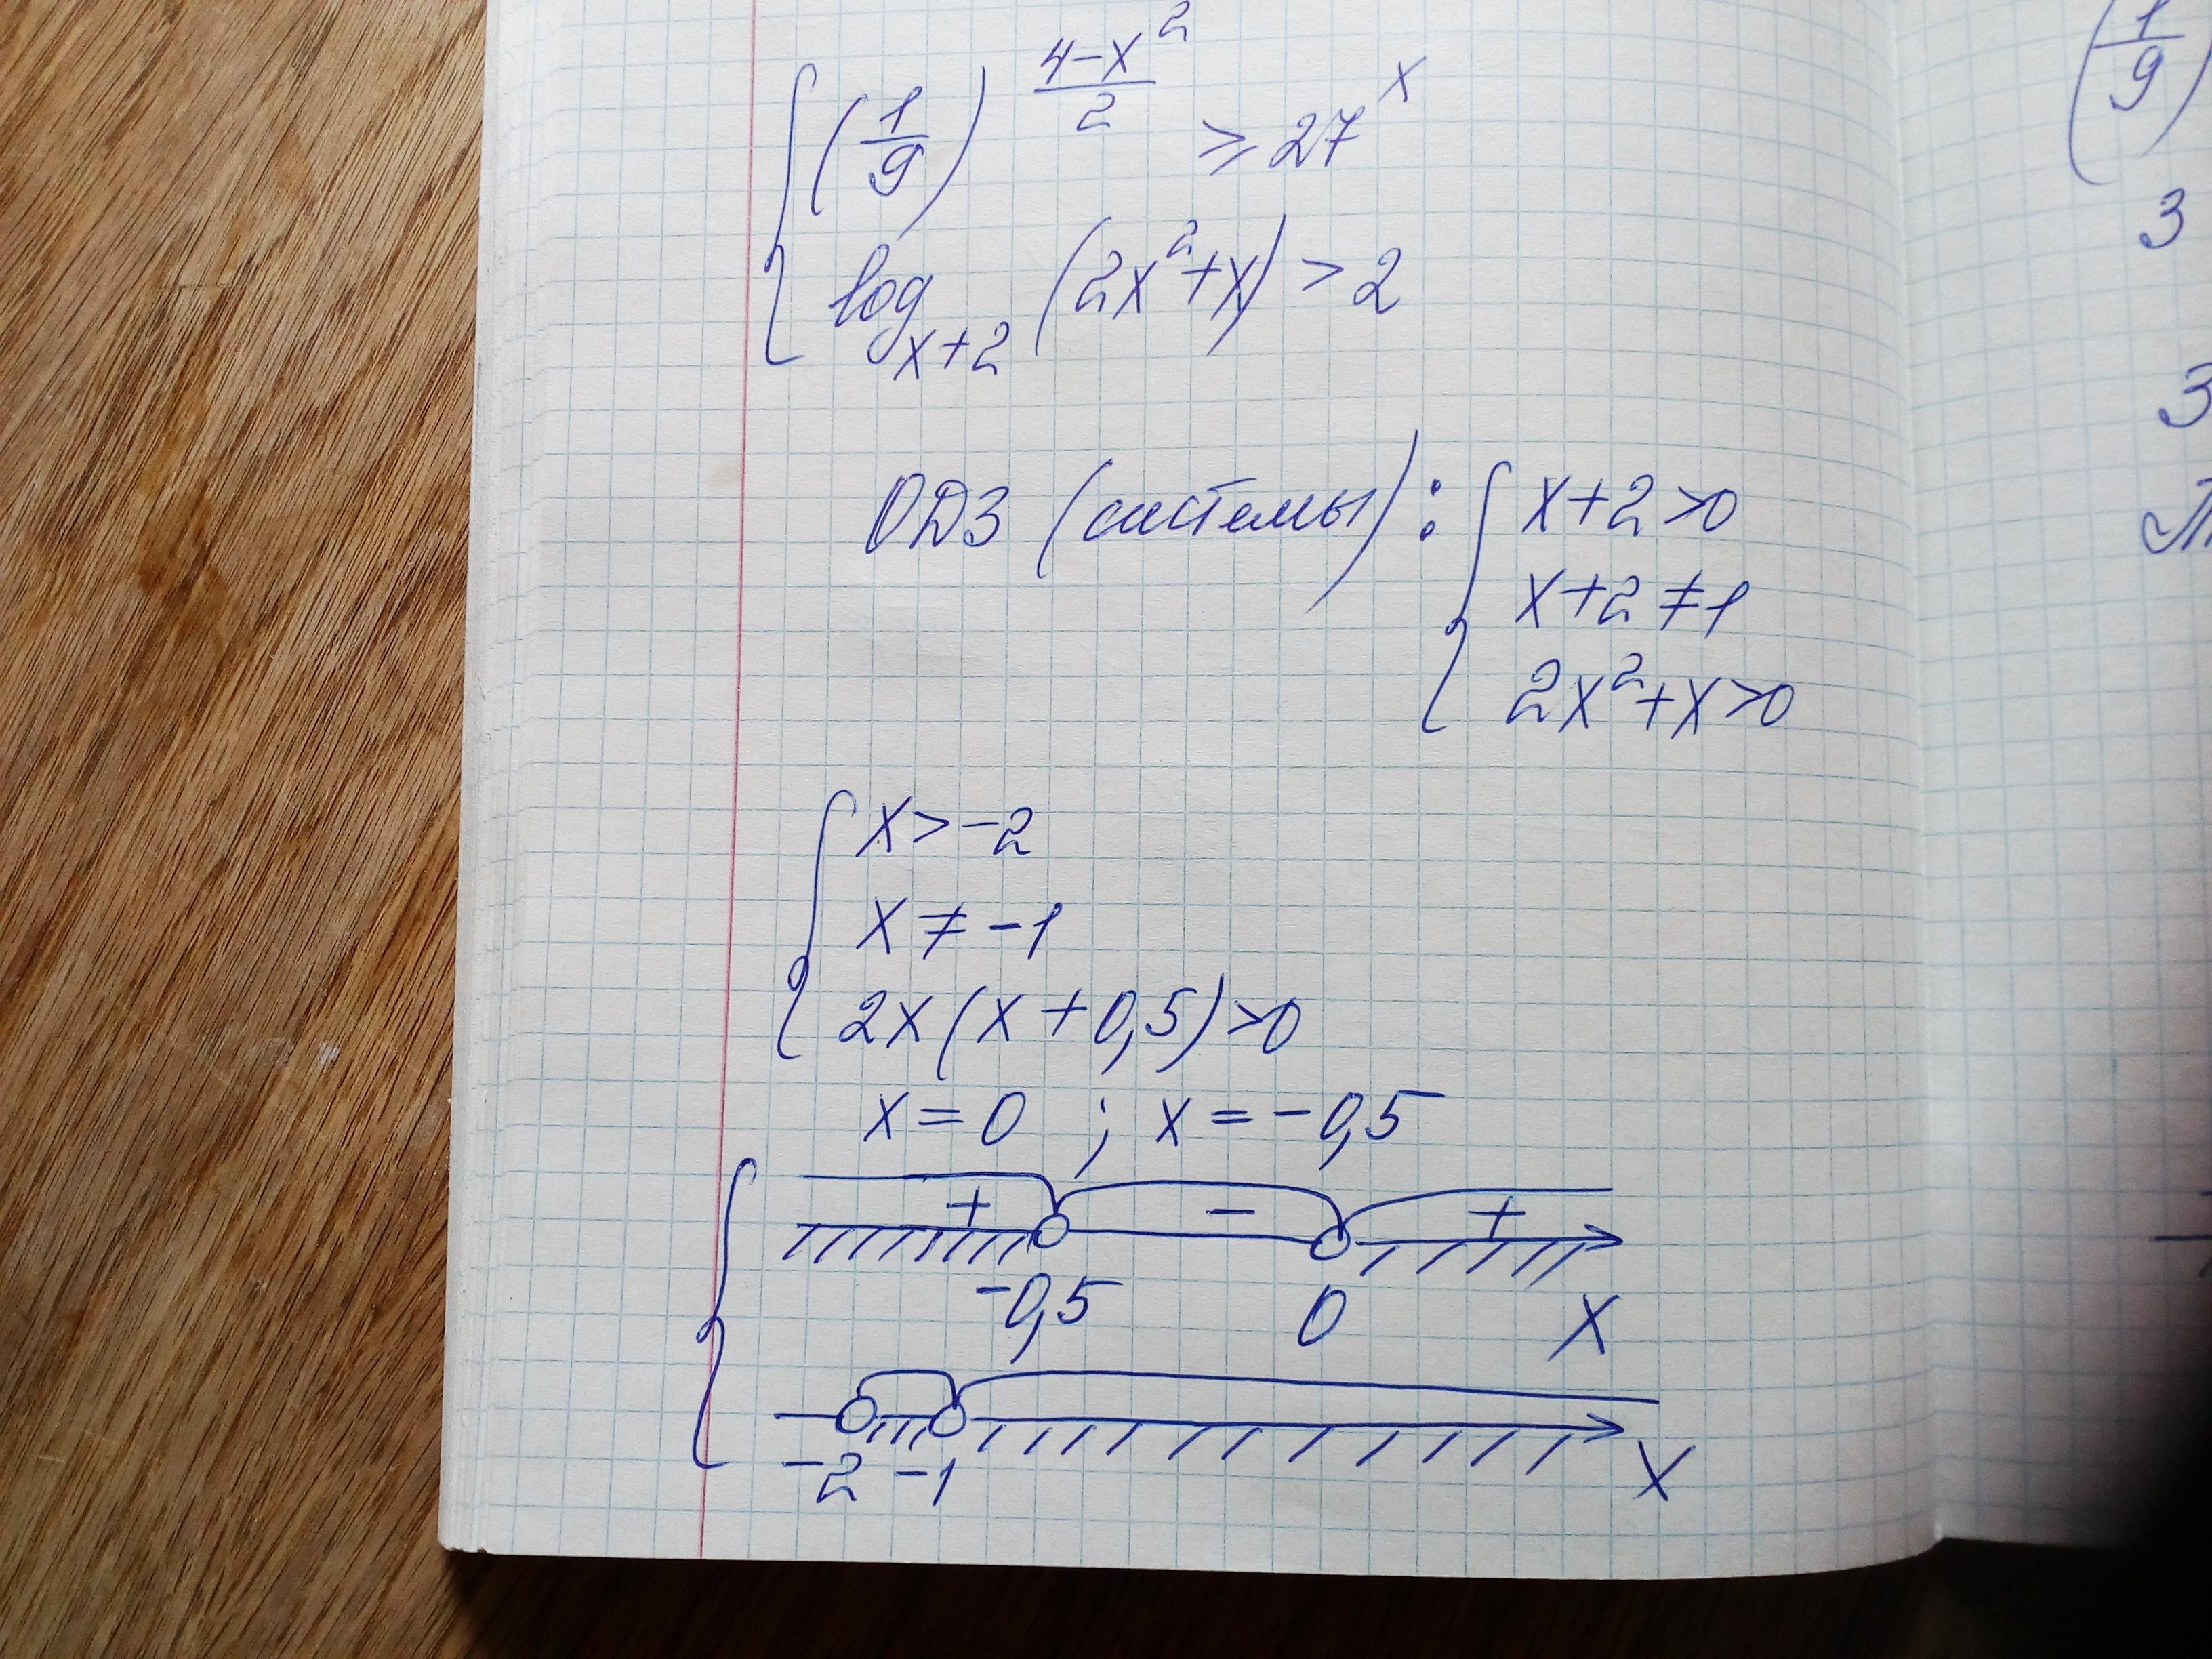 (1/9)^((4-x²)/2) ≥ 27^x
log_(x+2) (2x²+x) > 2
ОДЗ (системы): { x+2>0
x+2≠1
2x²+x>0
x>-2
x≠-1
2x(x+0,5)>0
x=0 ; x=-0,5
+ - +
-0,5 0 x
-2 -1 x
(1/9)
3
3